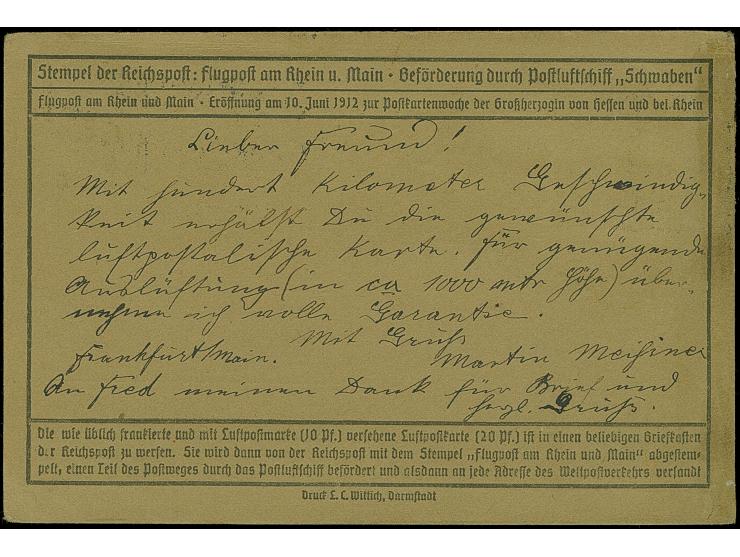 Stempel der Reichspost: Flugpost am Rhein u. Main · Beförderung durch Postluftschiff „Schwaben"
Flugpost am Rhein und Main · Eröffnung am 10. Juni 1912 zur Postkartenwoche der Großherzogin von Hessen und bei Rhein
Lieber Freund!
Mit hundert Kilometer Geschwindig-
keit erhälst Du die gewünschte
luftpostalische Karte. Für genügende
Auslüftung (in ca 1000 mtr Höhe) über-
nehme ich volle Garantie.
Mit Gruß
Frankfurt/Main. Martin
An Fred meinen Dank für Brief und
herzl. Gruß.
Die wie üblich frankierte und mit Luftpostmarke (10 Pf.) versehene Luftpostkarte (20 Pf.) ist in einen beliebigen Briefkasten
der Reichspost zu werfen. Sie wird dann von der Reichspost mit dem Stempel „Flugpost am Rhein und Main" abgestem-
pelt, einen Teil des Postweges durch das Postluftschiff befördert und alsdann an jede Adresse des Weltpostverkehrs versandt
Druck L. C. Wittich, Darmstadt